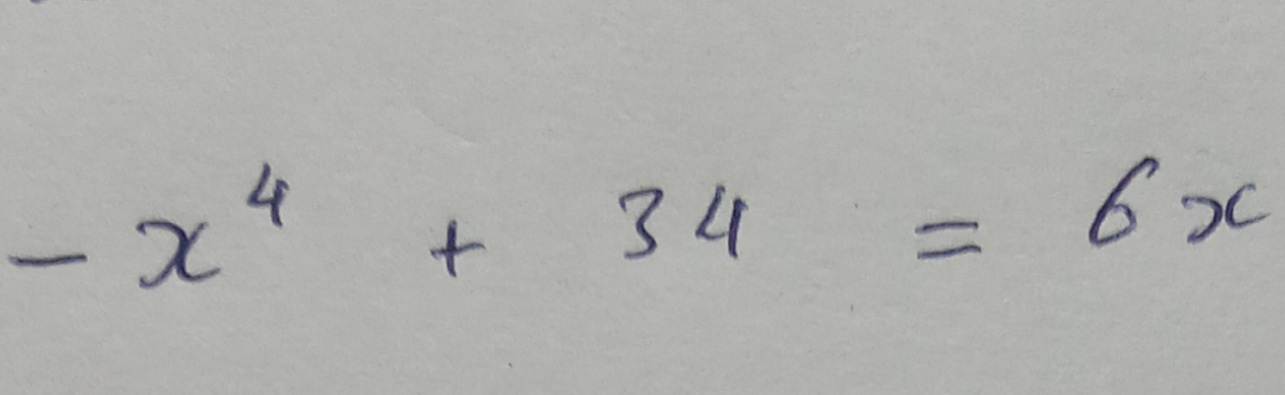 - x⁴ + 34 = 6x